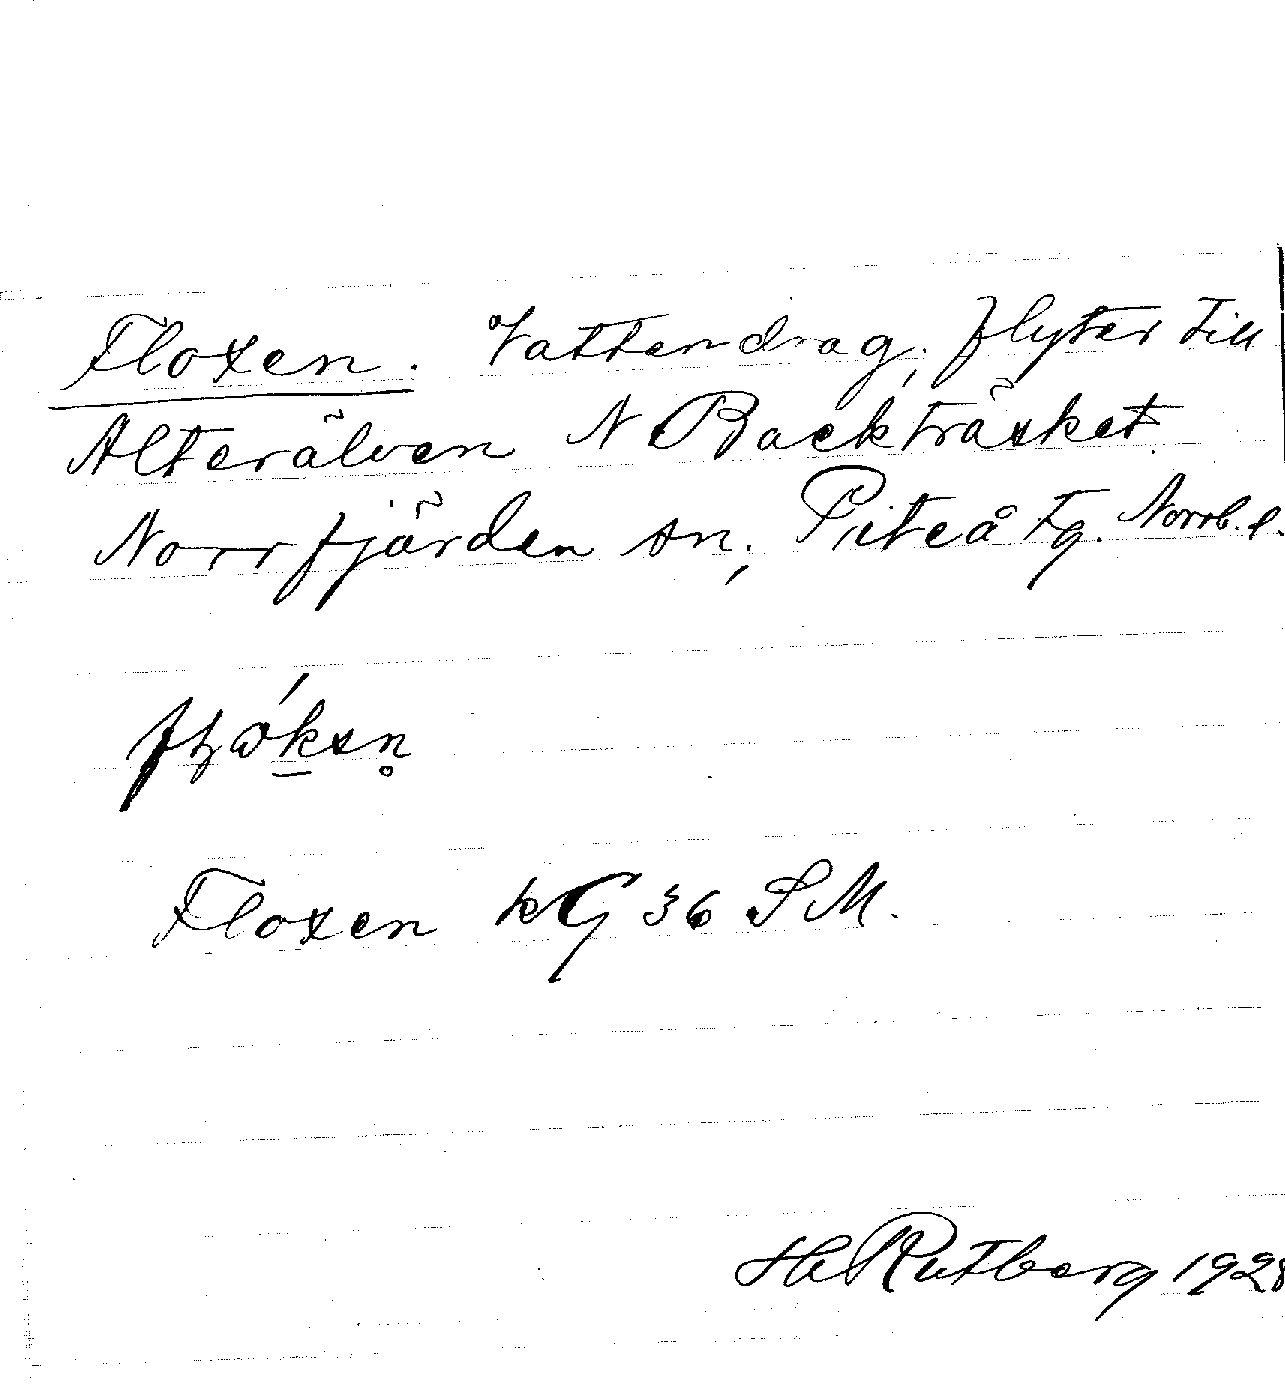 Floxen. Vattendrag, flyter till
Alterälven N Backträsket.
Norrfjärden sn, Piteå tg. Norrb. l.
Floxen kG 36 SM.
H Rutberg 1928